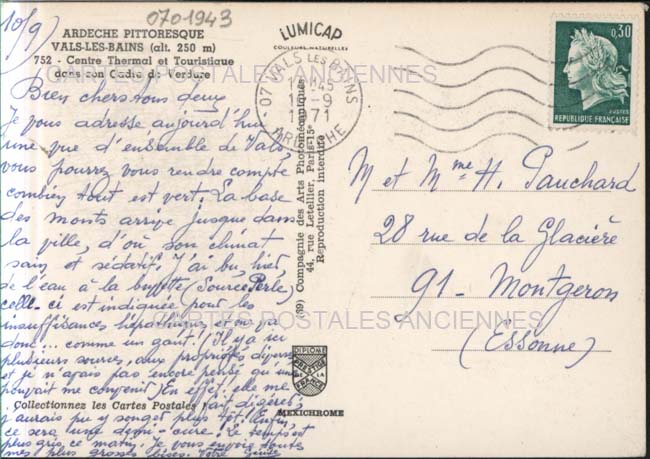 10/9)
0701943
ARDECHE PITTORESQUE
VALS-LES-BAINS (alt. 250 m)
752 - Centre Thermal et Touristique
dans son Cadre de Verdure
Bien chers tous deux,
Je vous adresse aujourd'hui
une vue d'ensemble de Vals,
vous pourrez vous rendre compte
combien tout est vert. La base
des monts arrive jusque dans
la ville, d'où son climat
sain et sédatif. J'ai bu, hier,
de l'eau à la buvette (Source Perle)
celle-ci est indiquée pour les
insuffisances hépatiques et me va
donc... comme un gant! (Il y a ici
plusieurs sources, aux propriétés
et je n'avais pas encore pensé qu'une
pouvait me convenir) En effet, elle me
fait digérer,
Collectionnez les Cartes Postales
j'aurais pu y songer plus tôt! Enfin,
ce sera une demi-cure! Le temps est
plus gris, ce matin. Je vous envoie toutes
mes plus grosses bises. Votre
LUMICAP
COULEURS NATURELLES
07 VALS LES BAINS
-9
1971
ARDECHE
(39) Compagnie des Arts Photomécaniques
44, rue Letellier, Paris-15e
Reproduction interdite
DIPLOME
PRESTIGE
DE LA
FRANCE
MEXICHROME
0,30
REPUBLIQUE FRANÇAISE
M et Mme H. Pauchard
28 rue de la Glacière
91 - Montgeron
(Essonne)
CARTES POSTALES ANCIENNES
CARTES POSTALES ANCIENNES